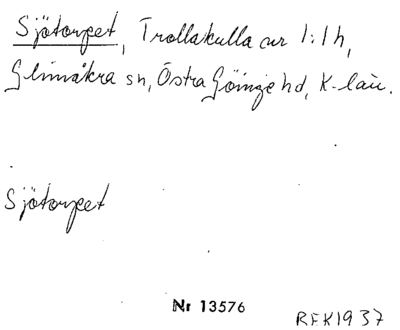 Sjötorpet, Trollakulla nr 1:1 h,
Glimåkra sn, Östra Göinge hd, K-län.
Sjötorpet
Nr 13576
REK1937